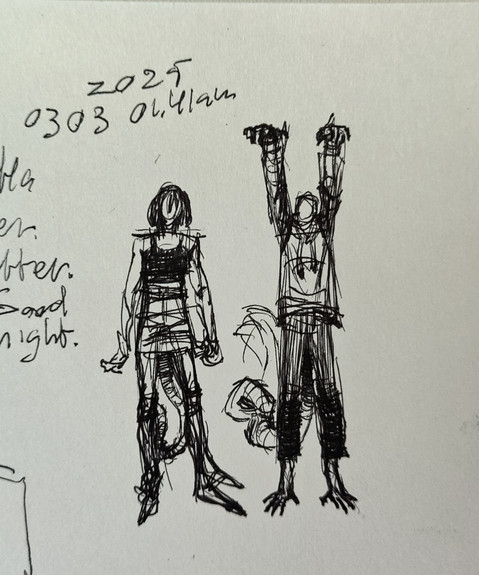 2025
0303 01.41am
bla
er.
tter.
Good
night.